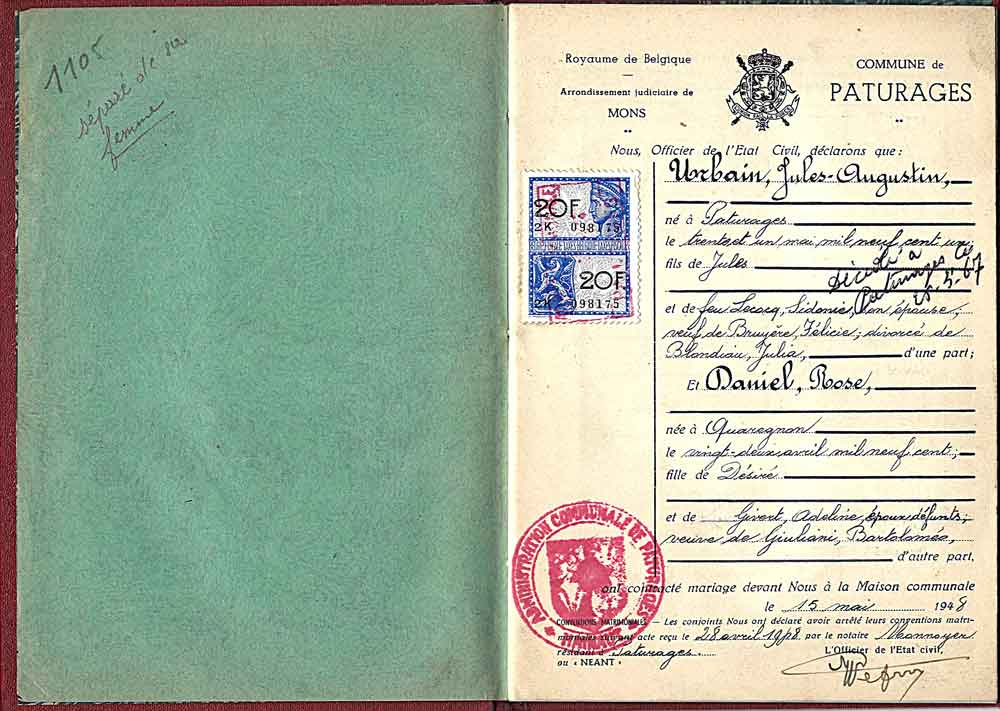 1105
séparé de sa
femme
Royaume de Belgique
Arrondissement judiciaire de
MONS
COMMUNE de
PATURAGES
Nous, Officier de l'Etat Civil, déclarons que :
Urbain, Jules-Augustin,
né à Paturages
le trente et un mai mil neuf cent un;
fils de Jules
Décédé à
Paturages le
25.5.67
et de feu Lecocq, Sidonie, son épouse;
veuf de Bruyère, Félicie; divorcé de
Blondiau, Julia, d'une part;
Et Daniel, Rose,
née à Quaregnon
le vingt-deux avril mil neuf cent;
fille de Désiré
et de Givert, Adeline, époux défunts;
veuve de Giuliani, Bartolomeo,
d'autre part,
ont contracté mariage devant Nous à la Maison communale
le 15 mai 1948
CONVENTIONS MATRIMONIALES — Les conjoints Nous ont déclaré avoir arrêté leurs conventions matri-
moniales suivant acte reçu le 28 avril 1948 par le notaire Mannoyer
résidant à Paturages.
ou « NEANT »
L'Officier de l'Etat civil,
20F
2K 098175
20F
2K 098175
ADMINISTRATION COMMUNALE DE PATURAGES
HAINAUT